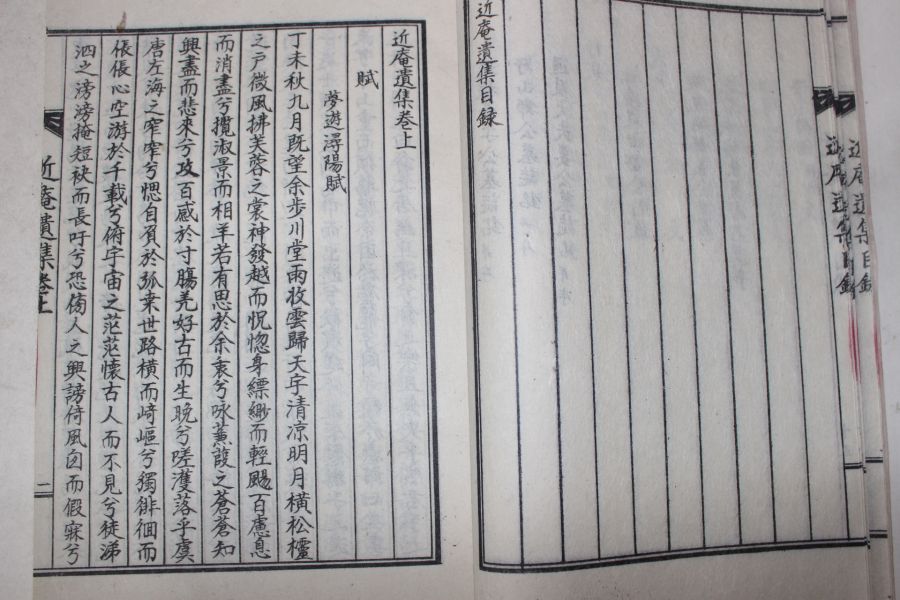 近庵遺集目録
近庵遺集目録
近庵遺集目録
近庵遺集卷上
賦
夢遊潯陽賦
丁未秋九月既望余步川堂雨收雲歸天字清凉明月橫松櫺
之戶微風拂芙蓉之裳神發越而怳惚身縹緲而輕颺百慮息
而消盡兮攬淑景而相羊若有思於余衷兮咏蒹葭之蒼蒼知
興盡而悲來兮攻百感於寸膓羌好古而生晚兮嗟濩落乎虞
唐左海之窄窄兮偲自賀於弧桒世路橫而崎嶇兮獨徘徊而
倀倀心空游於千載兮俯宇宙之茫茫懷古人而不見兮徒涕
泗之滂滂掩短袂而長吁兮恐傍人之興謗倚風囱而假寐兮
近庵遺集卷上